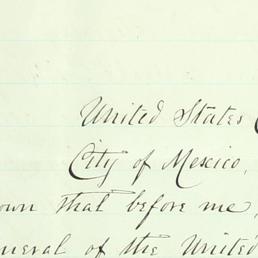 United States
City of Mexico,
own that before me,
neral of the United